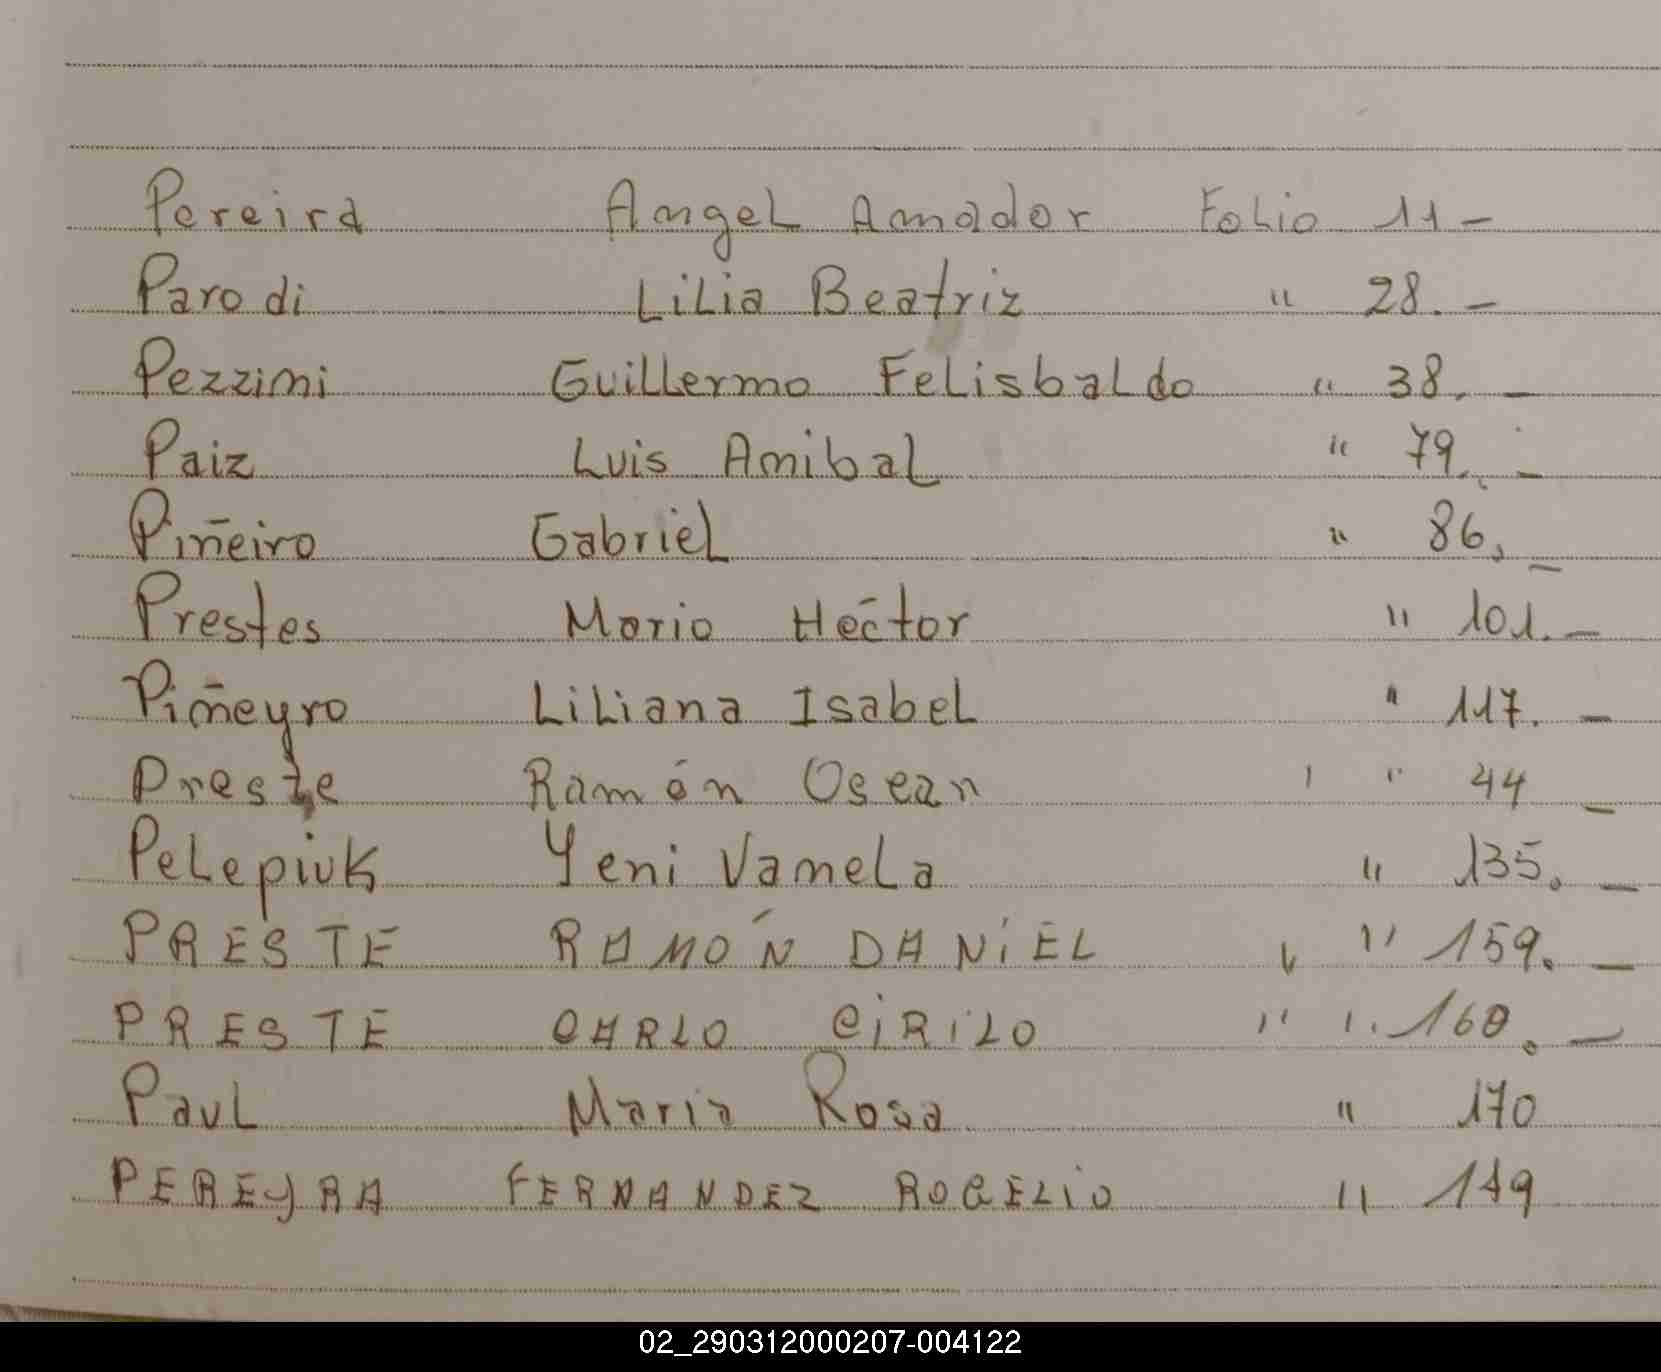 Pereira Angel Amador Folio 11 -
Parodi Lilia Beatriz " 28. -
Pezzimi Guillermo Felisbaldo " 38. -
Paiz Luis Anibal " 79. -
Piñeiro Gabriel " 86. -
Prestes Mario Hector " 101. -
Piñeyro Liliana Isabel " 117. -
Preste Ramón Oscar " 44 -
Pelepiuk Yeni Vamela " 135. -
PRESTE RAMÓN DANIEL " 159. -
PRESTE CARLO CIRILO " " 160. -
Paul Maria Rosa " 170
PEREYRA FERNANDEZ ROGELIO "
02_290312000207-004122